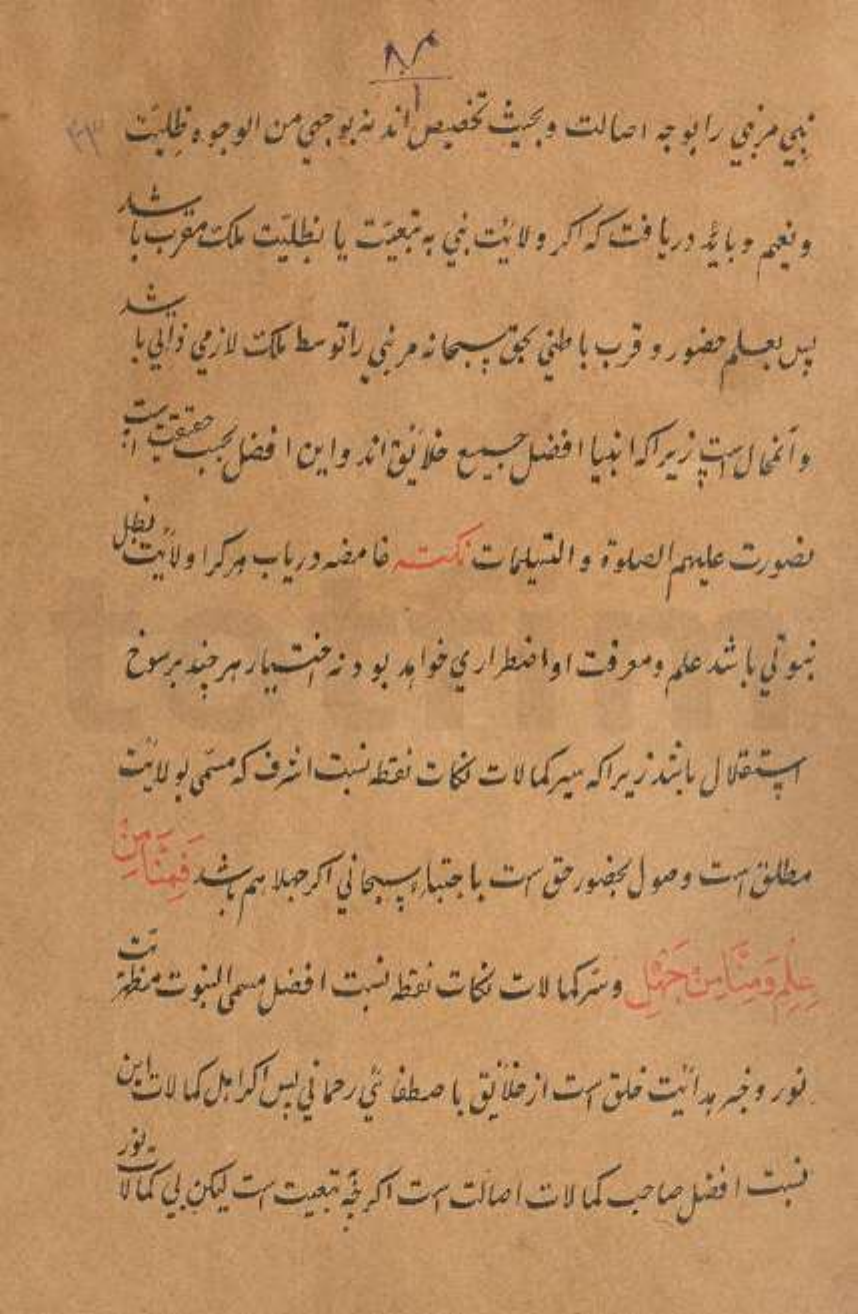 نبي مرنبي را بوجه اصالت وبحيث تخصيص اند نه بوجهي من الوجوه ظليّت
ونعيم وبايد دريافت كه اكر ولايت نبي به تبعيّت يا بظليّت ملك مقرب باشد
پس بعلم حضور و قرب باطني بحق سبحانه مر نبي را توسط ملك لازمي ذاتي باشد
وآنمحال است زيراكه انبيا افضل جميع خلائق اند واين افضل بحسب حقيقت است
بصورت عليهم الصلوة والتسليمات نكته غامضه درياب هركرا ولايت بظل
نبوتي باشد علم ومعرفت او اضطراري خواهد بود نه اختيار هرچند برسوخ
استقلال باشد زيراكه سير كمالات نكات نقطه نسبت اشرف كه مسمّى بولايت
مطلق است وصول بحضور حق است باجتباء سبحاني اكر جهلا هم باشد فَمِنَّا مِنْ
عِلْمٍ وَمِنَّا مِنْ جَهْلٍ وسرّ كمالات نكات نقطه نسبت افضل مسمى النبوت مظهريّت
نور وخبر هدائيت خلق است از خلائق باصطفائي رحماني پس اكر اهل كمالات اين
نسبت افضل صاحب كمالات اصالت است اكرچه تبعيت است ليكن بي كمالات نور